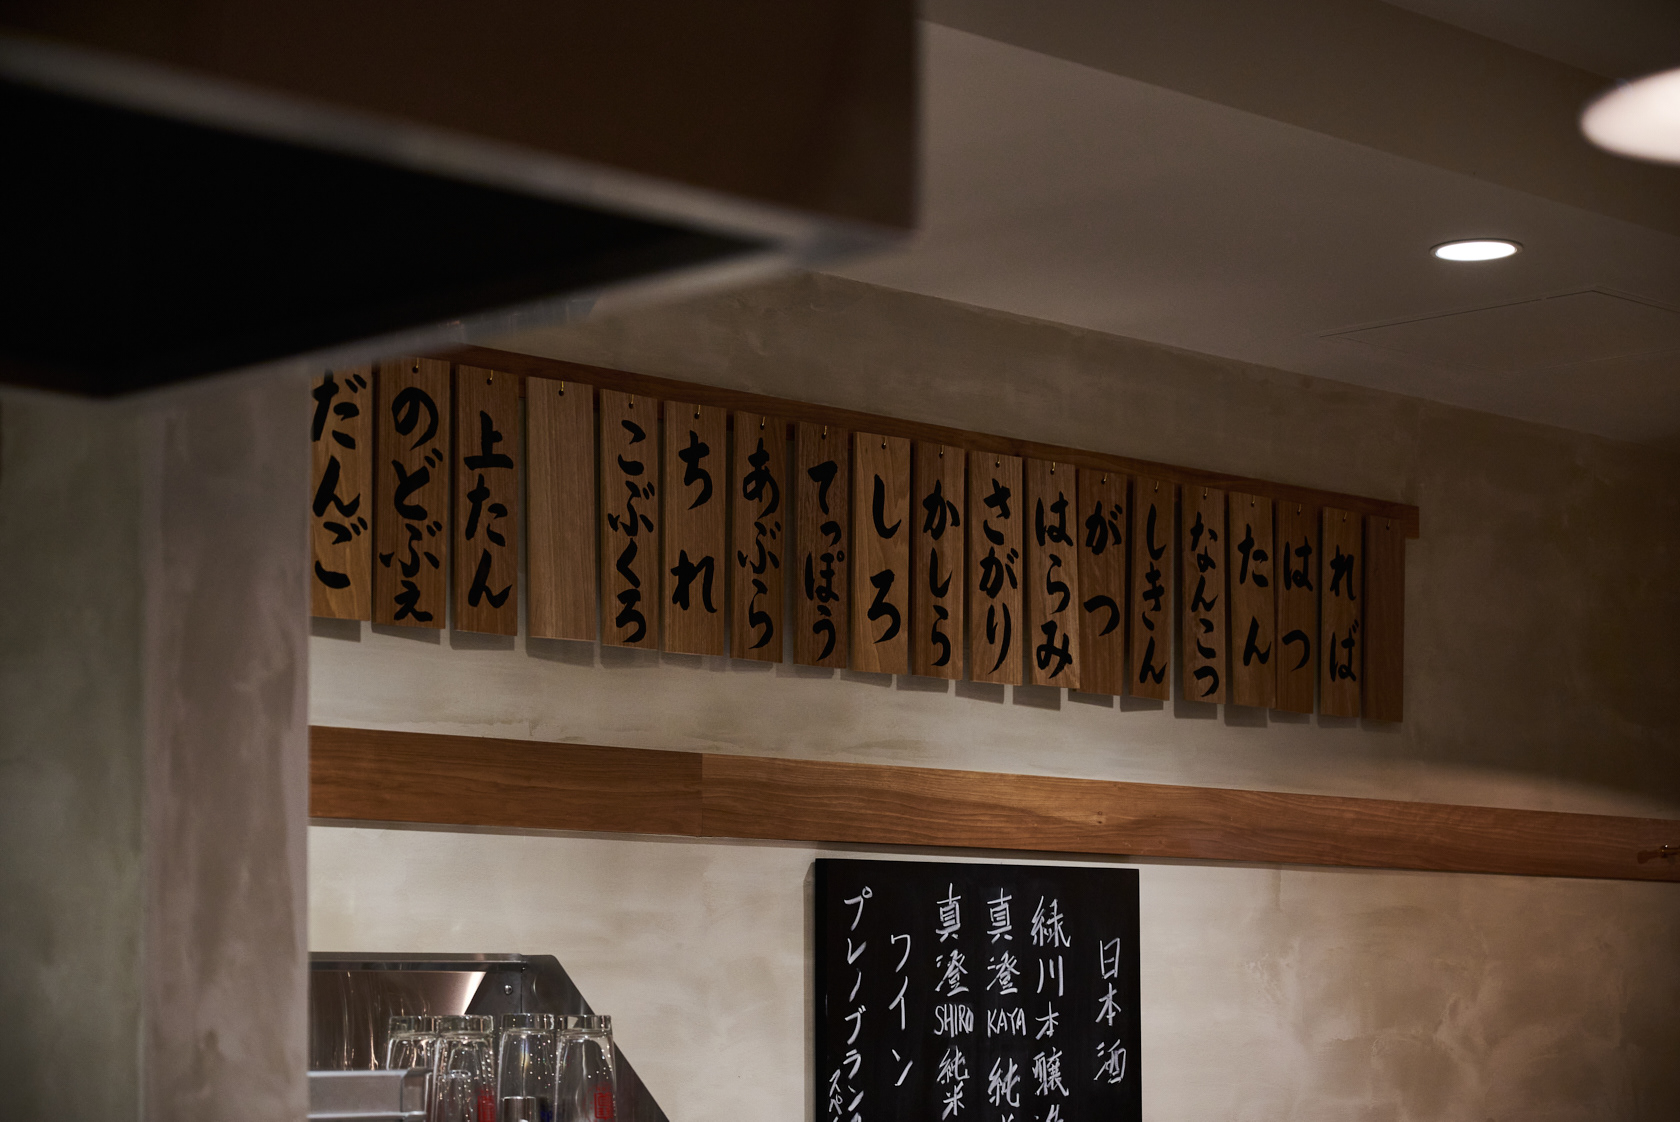 れば
はつ
たん
なんこつ
しきん
がつ
はらみ
さがり
かしら
しろ
てっぽう
あぶら
ちれ
こぶくろ
上たん
のどぶえ
だんご
日本酒
緑川本醸造
真澄KAYA純米
真澄SHIRO純米
ワイン
プレノブラン